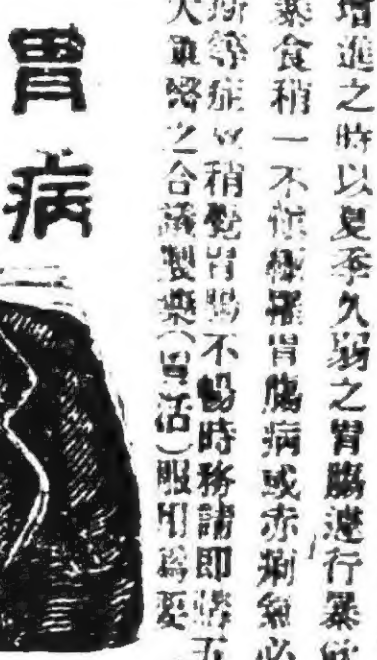 增進之時以夏季久弱之胃腸遽行暴飲
暴食稍一不慎極罹胃腸病或赤痢氣必
等症稍覺胃腸不暢時務請即將五
之合議製藥(胃活)服用為要
胃病